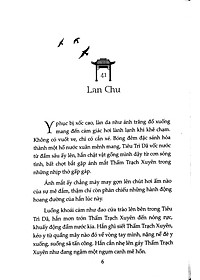 41
Lan Chu
Y phục bị xốc lên, làn da như ánh trăng đổ xuống
mang đến cảm giác hơi lành lạnh khi khẽ chạm.
Không có vuốt ve, chỉ có xâm lấn. Bóng đêm đặc sánh hóa
thành một hồ nước xuân mênh mang, Tiêu Trì Dã vớt nước
từ đầm sâu ấy lên, hắn chật vật gồng mình dậy từ cơn sóng
tình, bất chợt bắt gặp ánh mắt Thẩm Trạch Xuyên trong
những nhịp thở gấp gáp.
Ánh mắt ấy chẳng mảy may gợn lên chút hơi ẩm nào
của sự mê đắm, thậm chí còn phản chiếu những hành động
hoang đường của hắn lúc này.
Luồng khoái cảm như dao cứa trào lên bên trong Tiêu
Trì Dã, hắn mơn trớn Thẩm Trạch Xuyên đến nóng rực,
khuấy động đầm nước kia. Hắn ghì siết Thẩm Trạch Xuyên,
kéo y từ quãng mây nào đó về vòng tay mình, nặng nề đè y
xuống, suồng sã tấn công. Hắn cắn nhẹ lên gáy Thẩm Trạch
Xuyên như đang ngậm một ngụm canh mê hồn.
6